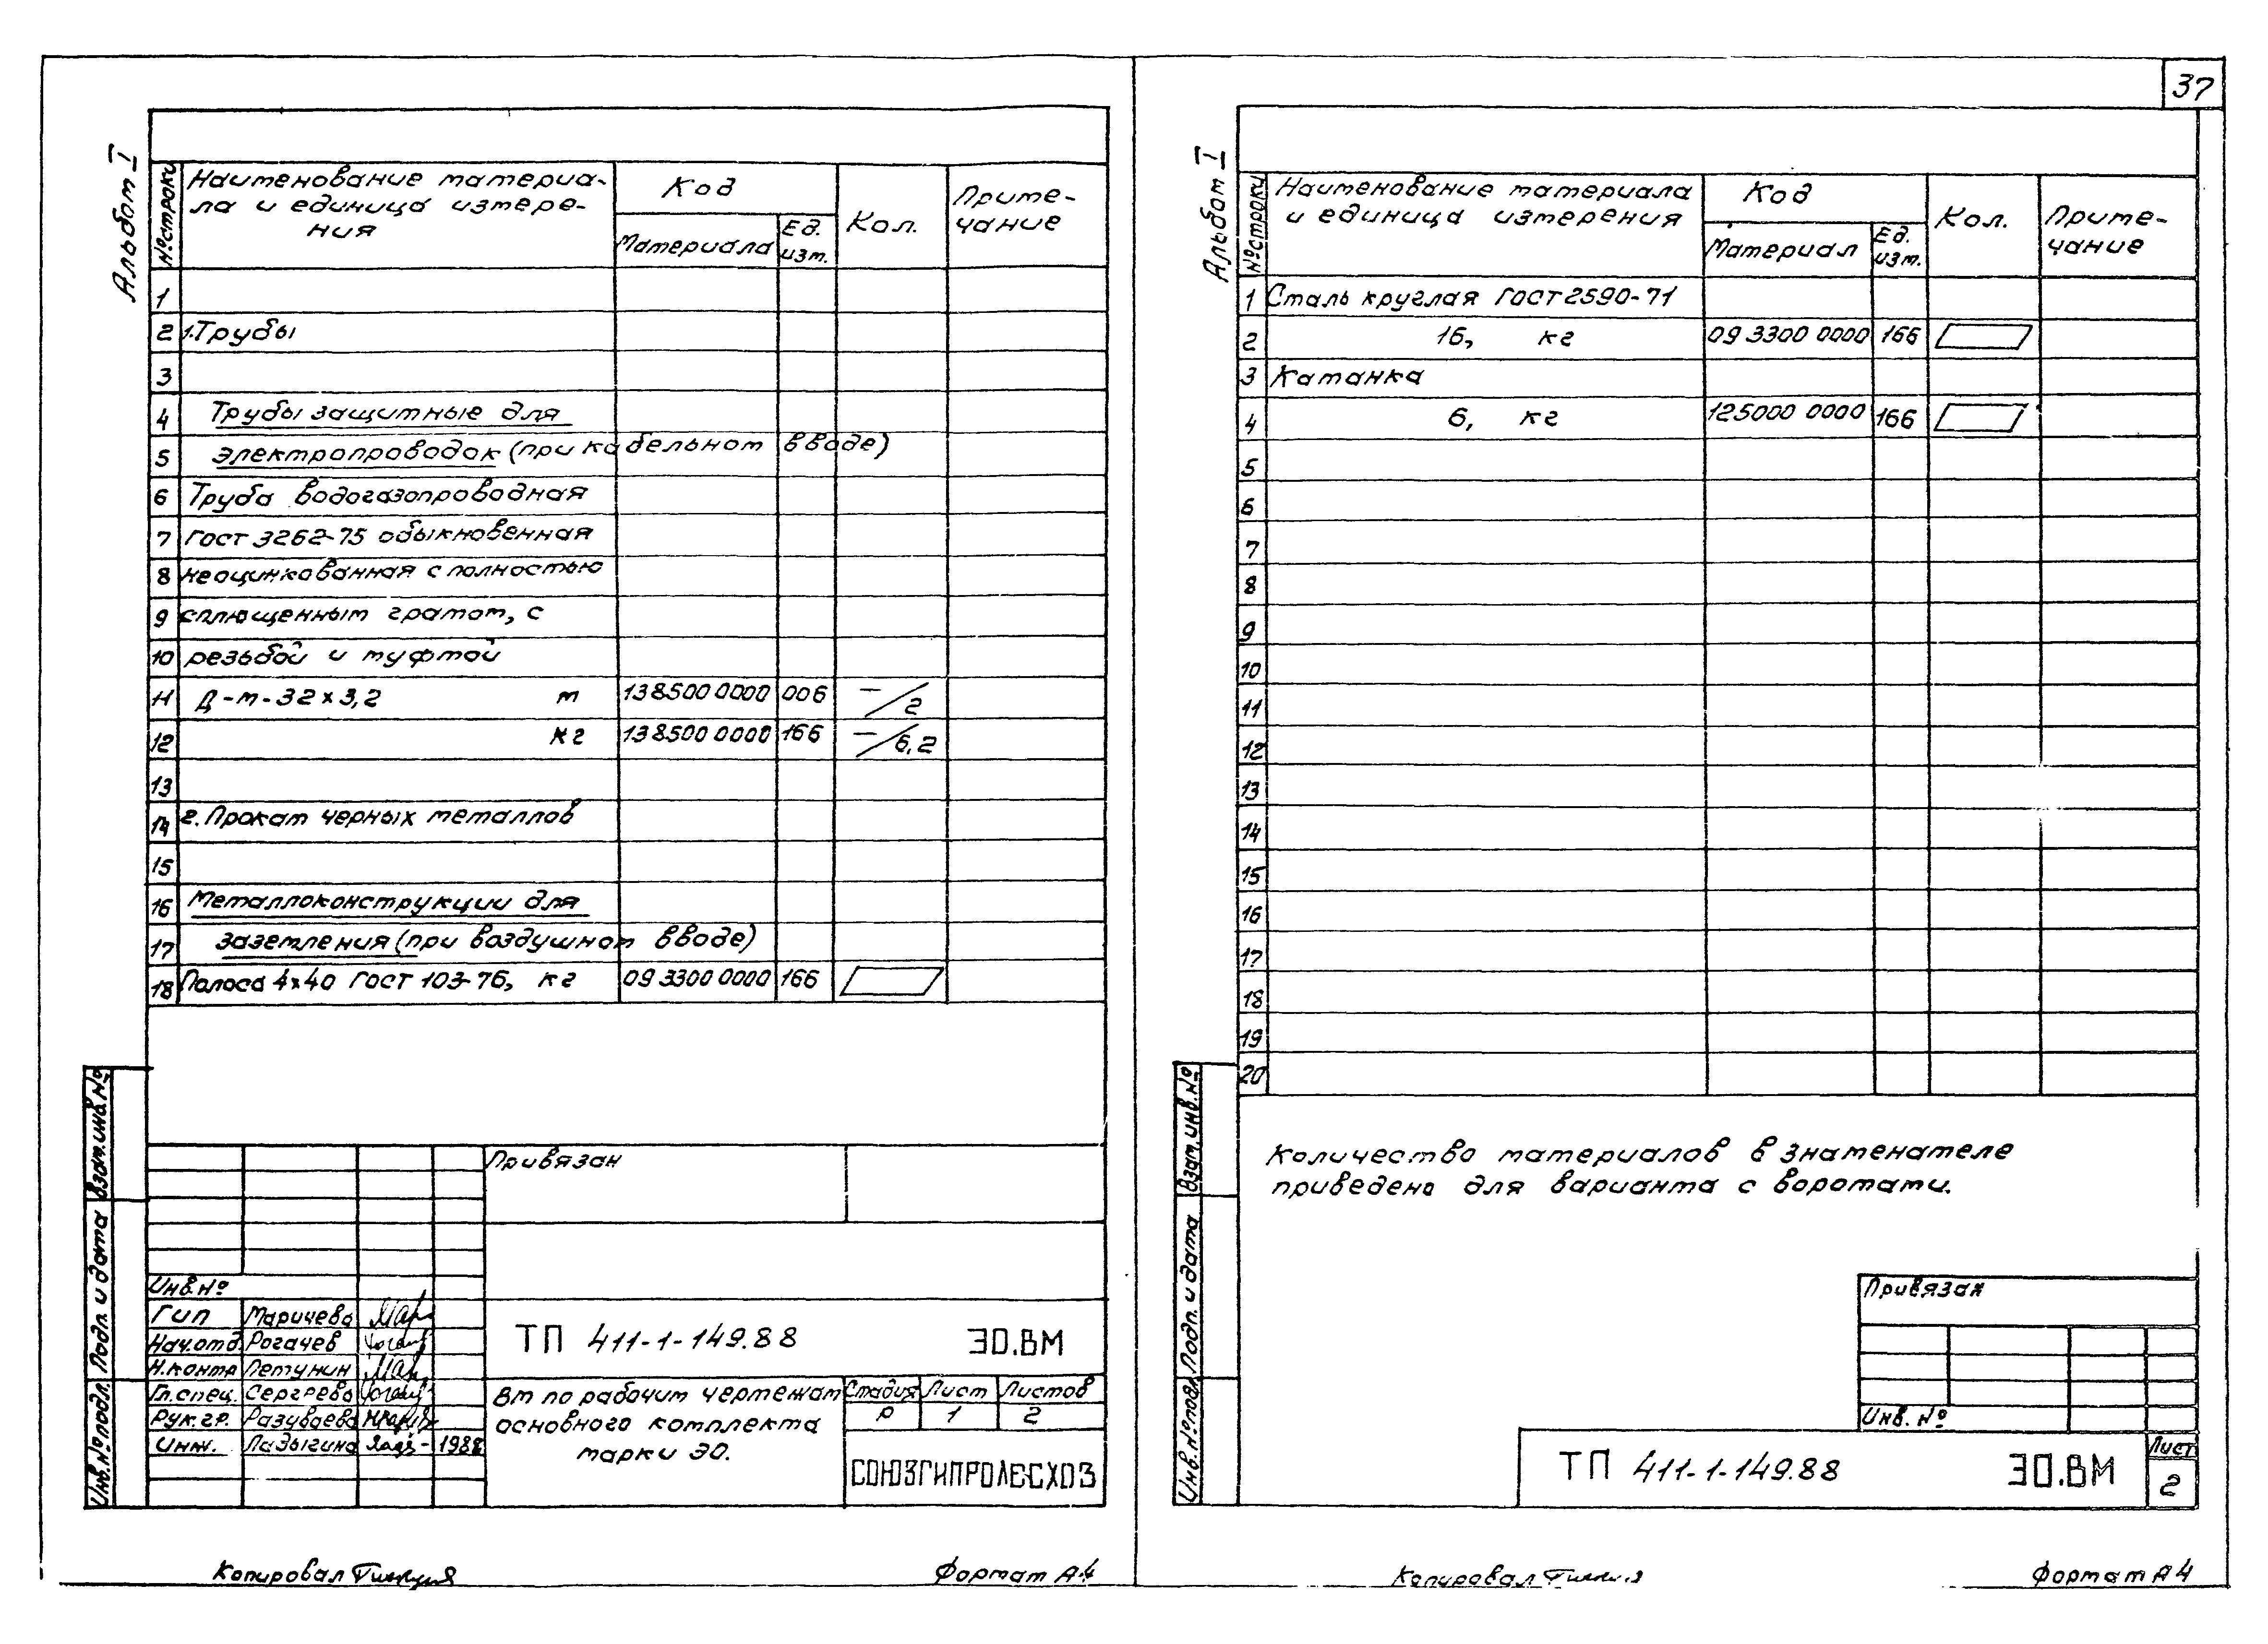 37
Альбом I
№ строки
Наименование материа-
ла и единица измере-
ния
Код
Материала
Ед.
изм.
Кол.
Приме-
чание
1
2 1.Трубы
3
4 Трубы защитные для
5 электропроводок (при кабельном вводе)
6 Труба водогазопроводная
7 ГОСТ 3262-75 обыкновенная
8 неоцинкованная с полностью
9 сплющенным гратом, с
10 резьбой и муфтой
11 Д-м-32х3,2 м 138500 0000 006 —/2
12 кг 138500 0000 166 —/6,2
13
14 2.Прокат черных металлов
15
16 Металлоконструкции для
17 заземления (при воздушном вводе)
18 Полоса 4х40 ГОСТ 103-76, кг 09 3300 0000 166
Взам.инв.№
Подп. и дата
Инв.№ подл.
Привязан
Инв.№
ГИП Маричева
Нач.отд Рогачев
Н.контр Петунин
Гл.спец. Сергеева
Рук.гр. Разуваева
Инж. Ладыгина 1988
ТП 411-1-149.88 ЭО.ВМ
Вм по рабочим чертежам
основного комплекта
марки ЭО.
Стадия Лист Листов
Р 1 2
СОЮЗГИПРОЛЕСХОЗ
Копировал
Формат А4
Альбом I
№ строки
Наименование материала
и единица измерения
Код
Материал
Ед.
изм.
Кол.
Приме-
чание
1 Сталь круглая ГОСТ 2590-71
2 16, кг 09 3300 0000 166
3 Катанка
4 6, кг 125000 0000 166
5
6
7
8
9
10
11
12
13
14
15
16
17
18
19
20
Количество материалов в знаменателе
приведено для варианта с воротами.
Взам.инв.№
Подп. и дата
Инв.№ подл.
Привязан
Инв. №
ТП 411-1-149.88 ЭО.ВМ
Лист
2
Копировал
Формат А4